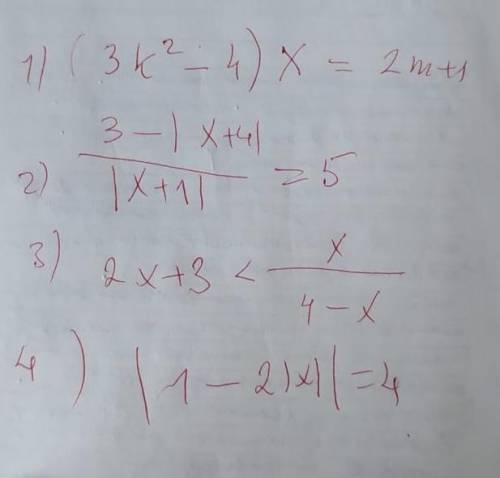 1) (3k² - 4) x = 2m+1
2) \frac{3 - |x+4|}{|x+1|} = 5
3) 2x+3 < \frac{x}{4-x}
4) |1 - 2|x|| = 4